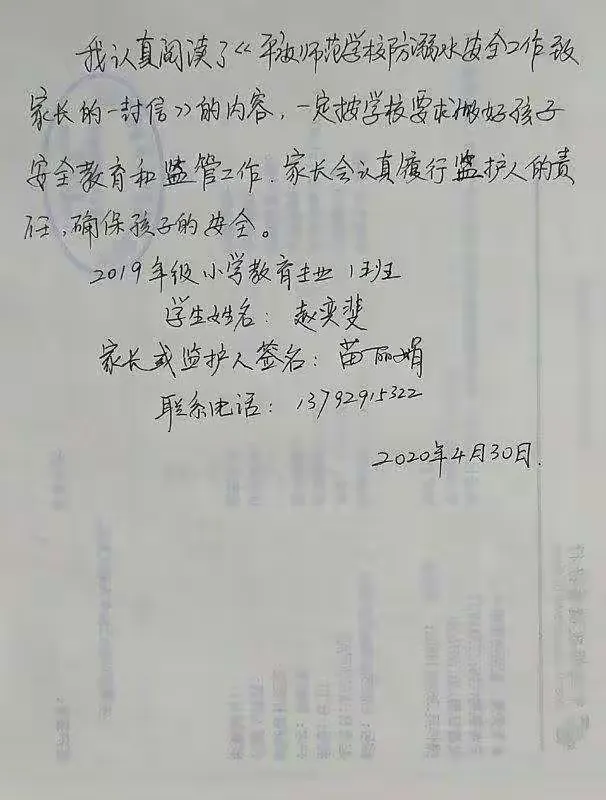 我认真阅读了《平度师范学校防溺水安全工作致
家长的一封信》的内容，一定按学校要求做好孩子
安全教育和监管工作.家长会认真履行监护人的责
任,确保孩子的安全。
2019年级小学教育专业1班
学生姓名：赵奕斐
家长或监护人签名：苗丽娟
联系电话：13792915322
2020年4月30日.